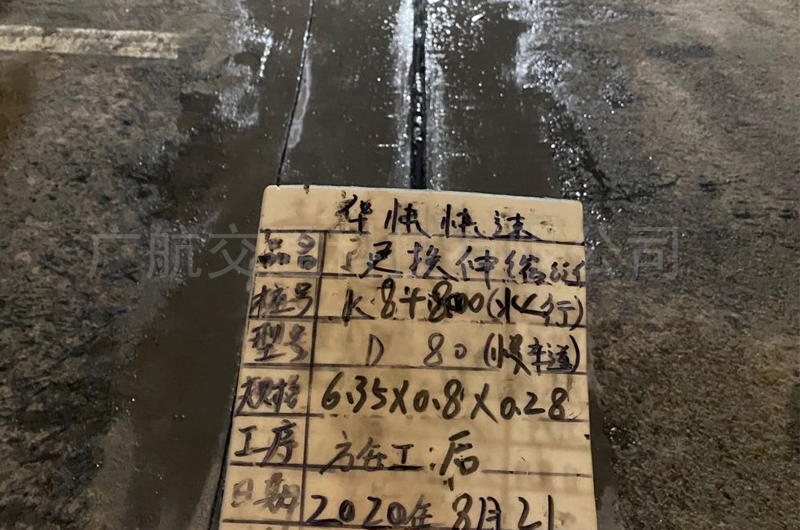 华快快速
品名 更换伸缩缝
桩号 K8+800(北行)
型号 D 80(慢车道)
规格 6.35×0.8×0.28
工序 施工后
日期 2020年8月21
广航交 公司